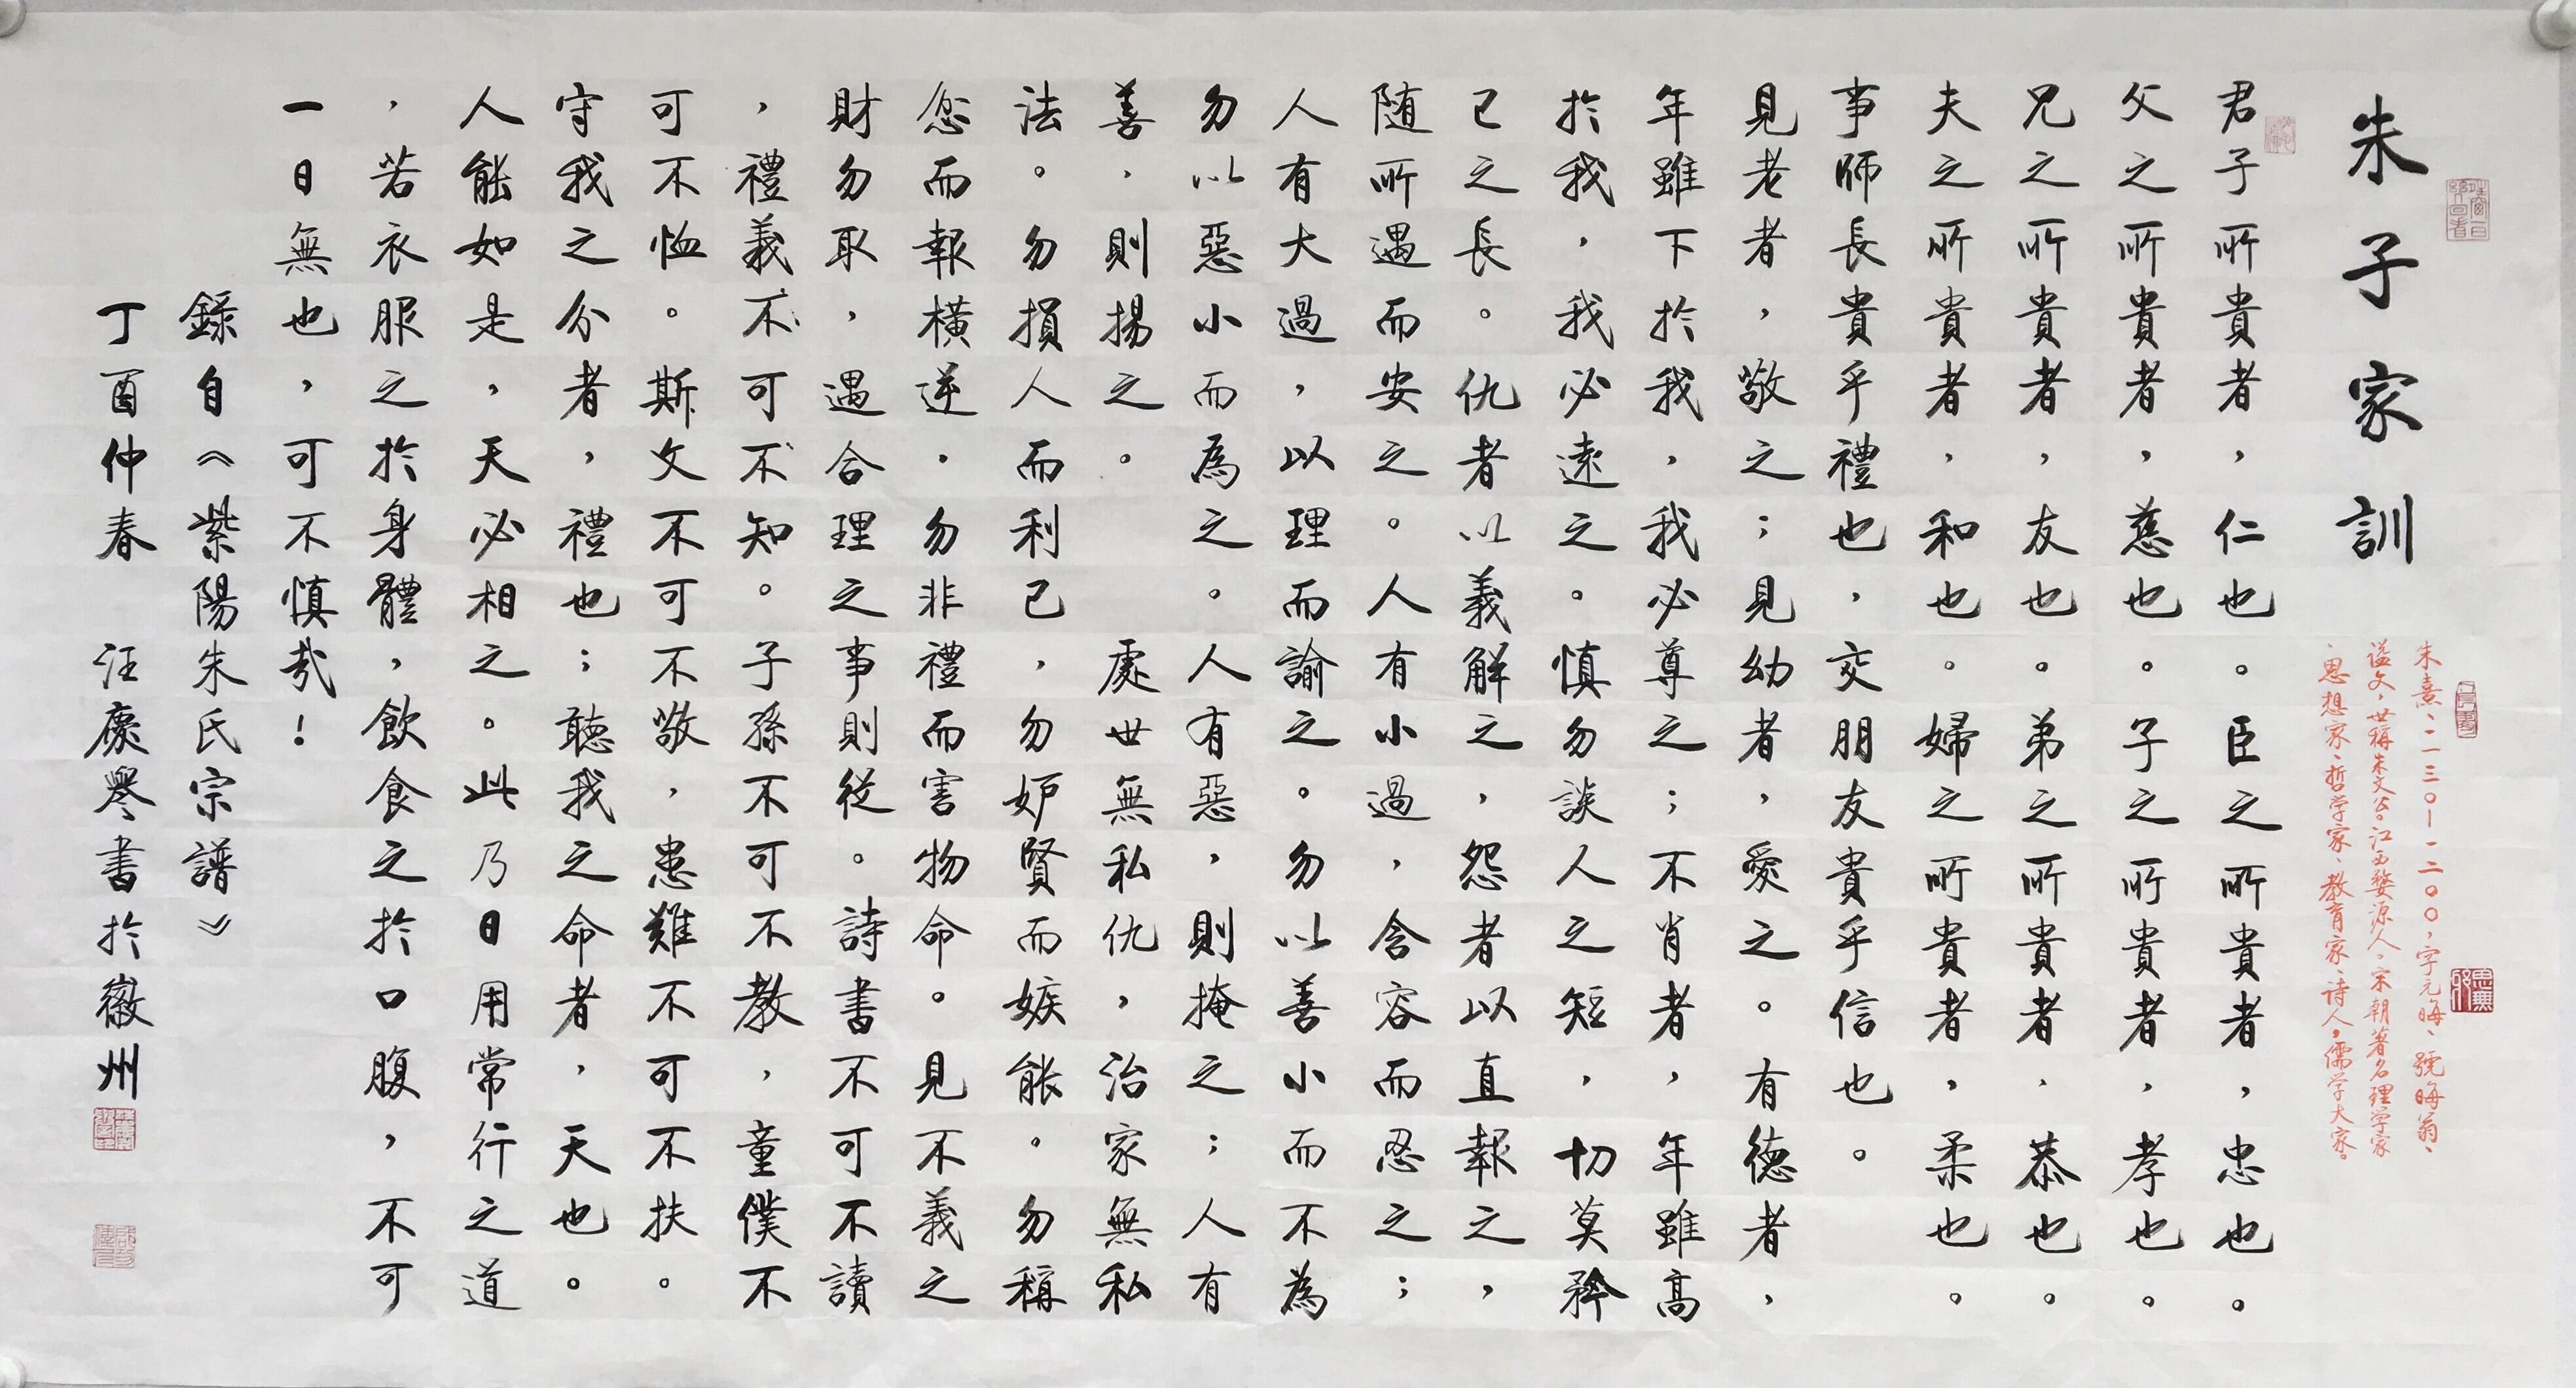 朱子家訓
朱熹:一一三〇—一二〇〇,字元晦、號晦翁、
謚文,世稱朱文公。江西婺源人。宋朝著名理學家
、思想家、哲学家、教育家、詩人,儒学大家。
君子所貴者,仁也。臣之所貴者,忠也。
父之所貴者,慈也。子之所貴者,孝也。
兄之所貴者,友也。弟之所貴者,恭也。
夫之所貴者,和也。婦之所貴者,柔也。
事師長貴乎禮也,交朋友貴乎信也。
見老者,敬之;見幼者,愛之。有德者,
年雖下於我,我必尊之;不肖者,年雖高
於我,我必遠之。慎勿談人之短,切莫矜
己之長。仇者以義解之,怨者以直報之,
随所遇而安之。人有小過,含容而忍之;
人有大過,以理而諭之。勿以善小而不為
勿以惡小而為之。人有惡,則掩之;人有
善,則揚之。 處世無私仇,治家無私
法。勿損人而利己,勿妒賢而嫉能。勿稱
忿而報橫逆,勿非禮而害物命。見不義之
財勿取,遇合理之事則從。詩書不可不讀
,禮義不可不知。子孫不可不教,童僕不
可不恤。斯文不可不敬,患難不可不扶。
守我之分者,禮也;聽我之命者,天也。
人能如是,天必相之。此乃日用常行之道
,若衣服之於身體,飲食之於口腹,不可
一日無也,可不慎哉!
錄自《紫陽朱氏宗譜》
丁酉仲春 汪慶書於徽州